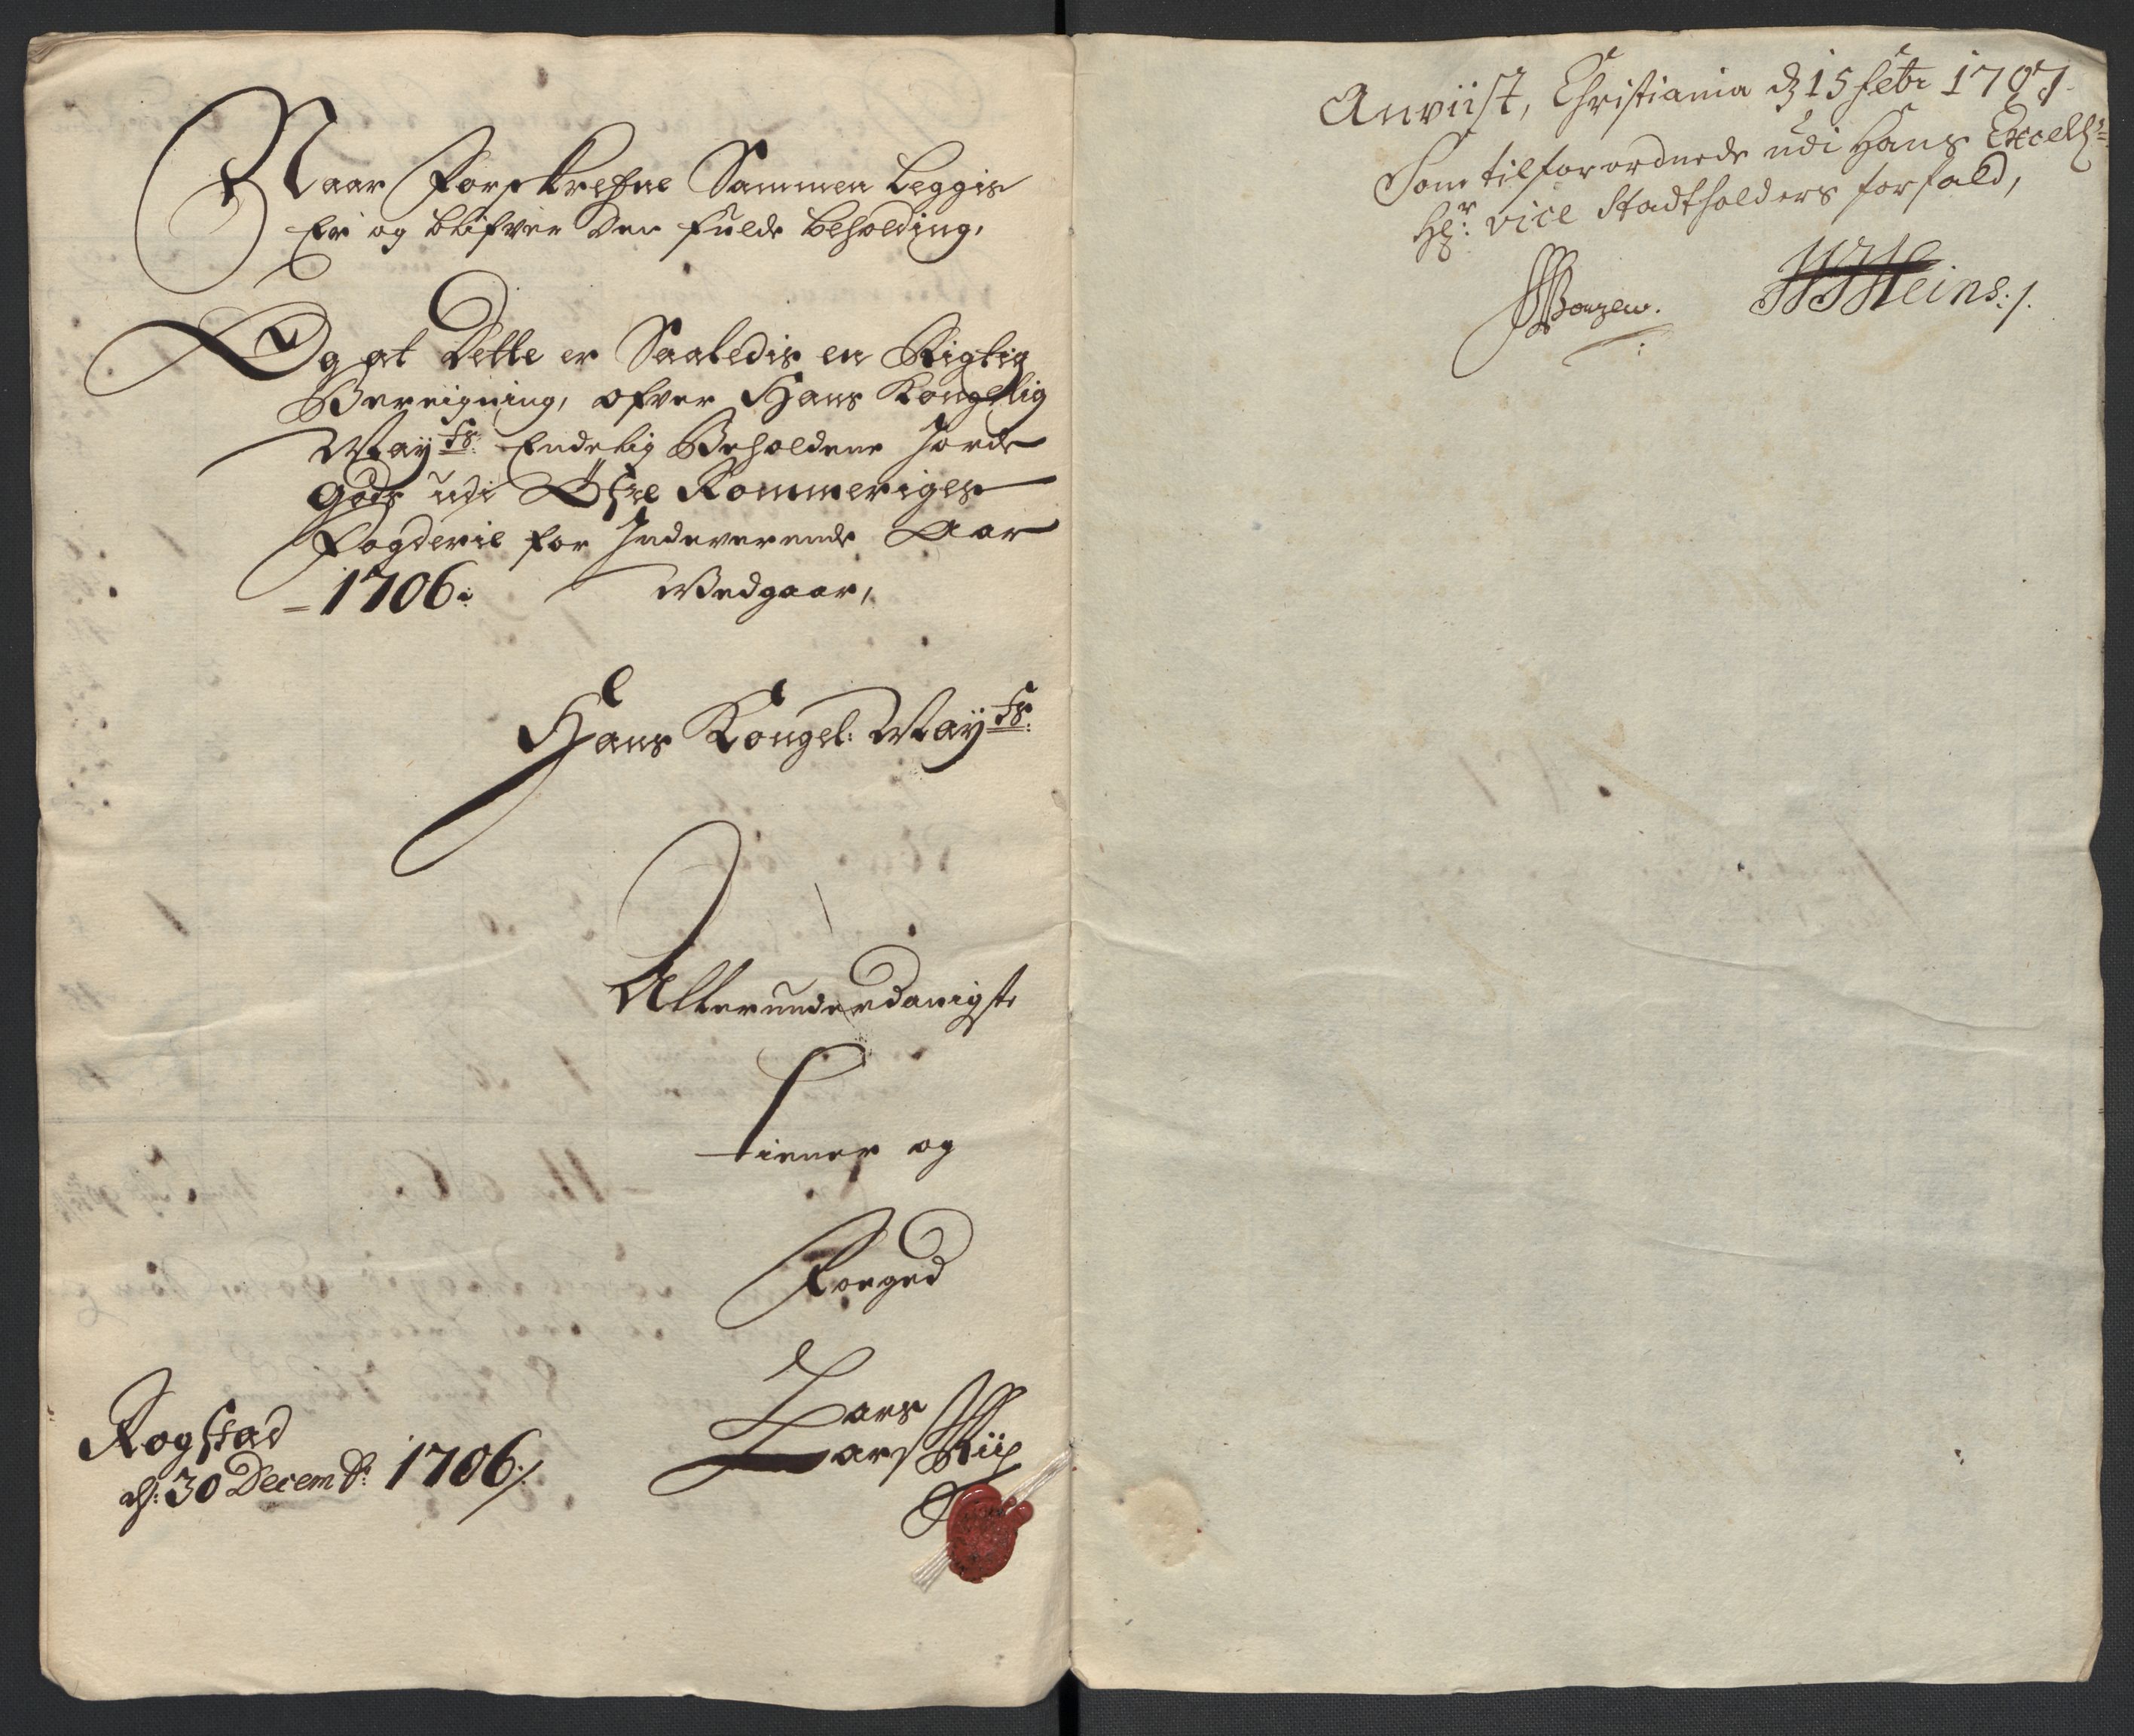 Naar forskrefne Sammen Leggis
Er og blifver Den fulde beholding,
Og at Dette er Saaledis en Rigtig
Bereigning, ofver Hans Kongelig
Mayts: Endelig Beholdene Jorde
Gods udi Öfre Rommeriges
Fogderie for Indeverende Aar
1706: Vedgaar,
Hans Kongel: Mayts:
Allerunderdanigste
tiener og
Foeged
Lars
Lars Riis
Rogstad
d: 30 Decembr: 1706./.
Anviist, Christiania d 15 febr 1707.
Som tilforordnede udi Hans Excells:
Hr: vice Stadtholders forfald,